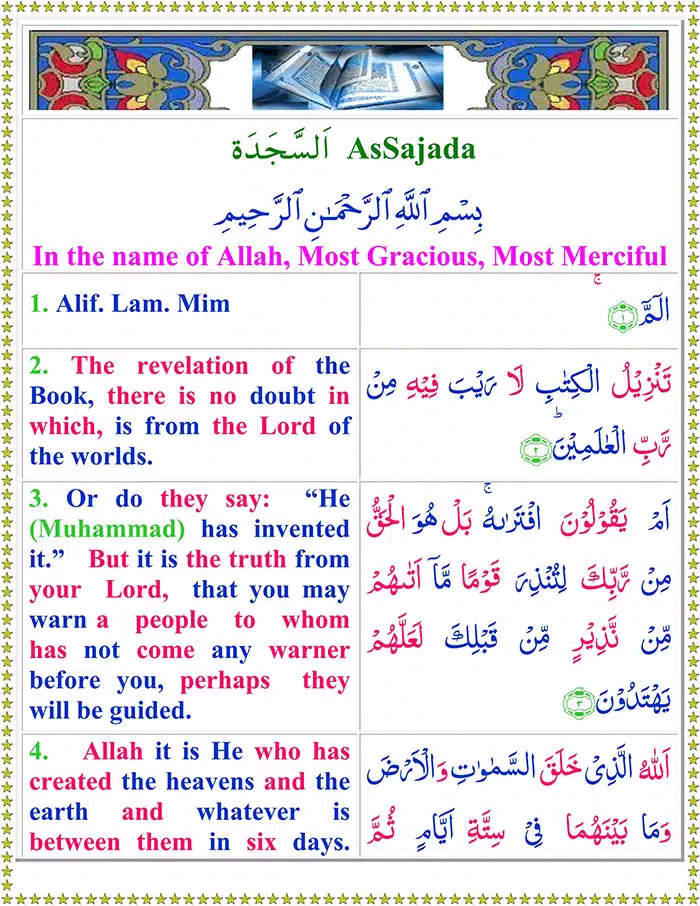 اَلسَّجَدَة AsSajada
بِسْمِ ٱللَّهِ ٱلرَّحْمَـٰنِ ٱلرَّحِيمِ
In the name of Allah, Most Gracious, Most Merciful
1. Alif. Lam. Mim
الٓمّٓ ۚ ﴿۱﴾
2. The revelation of the
Book, there is no doubt in
which, is from the Lord of
the worlds.
تَنْزِيْلُ الْكِتٰبِ لَا رَيْبَ فِيْهِ مِنْ
رَّبِّ الْعٰلَمِيْنَ ؕ ﴿۲﴾
3. Or do they say: “He
(Muhammad) has invented
it.” But it is the truth from
your Lord, that you may
warn a people to whom
has not come any warner
before you, perhaps they
will be guided.
اَمْ يَقُوْلُوْنَ افْتَرٰىهُ ۚ بَلْ هُوَ الْحَقُّ
مِنْ رَّبِّكَ لِتُنْذِرَ قَوْمًا مَّاۤ اَتٰىهُمْ
مِّنْ نَّذِيْرٍ مِّنْ قَبْلِكَ لَعَلَّهُمْ
يَهْتَدُوْنَ ﴿۳﴾
4. Allah it is He who has
created the heavens and the
earth and whatever is
between them in six days.
اَللّٰهُ الَّذِىْ خَلَقَ السَّمٰوٰتِ وَالْاَرْضَ
وَمَا بَيْنَهُمَا فِىْ سِتَّةِ اَيَّامٍ ثُمَّ